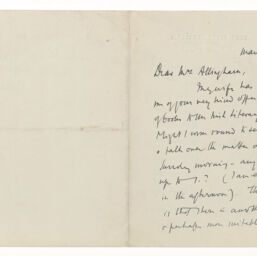 Mar
Dear Mrs Allingham,
My wife has
me of your very kind offer
of books to the Irish Literary
Might I come round to see
& talk over the matter o
Sunday morning - any
up to 1.? (I am
in the afternoon). Th
is that there is anoth
& perhaps more suitable